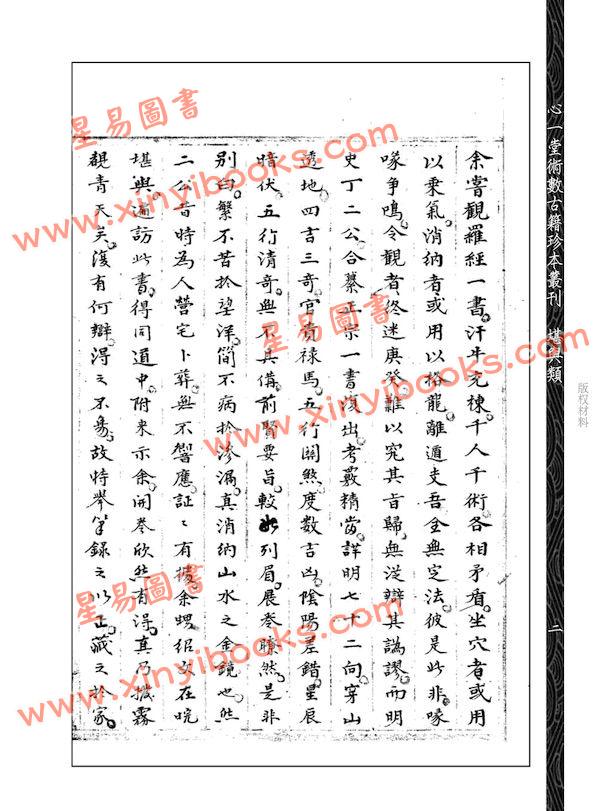 心一堂術數古籍珍本叢刊 堪輿類
二
版权材料
余嘗觀羅經一書汗牛充棟千人千術各相矛盾坐穴者或用
以乘氣消納者或用以格龍離遁支吾全無定法彼是此非喙
喙爭鳴令觀者終迷庚癸難以究其旨歸無從辯其譌謬而明
史丁二公合纂正宗一書復出考覈精當詳明七十二向穿山
透地四吉三奇官貴祿馬五行關煞度數吉凶陰陽差錯星辰
暗伏五行清奇無不具備前賢要旨較此列眉展卷瞭然是非
別曰繁不苦於望洋簡不病於滲漏真消納山水之金鏡也然
二公昔時為人營宅卜葬無不響應証々有據余甥紹文在皖
堪輿遍訪此書得同道中附來示余開卷欣然有得真乃撥霧
覩青天矣復有何辯得之不易故特舉筆錄之以正藏之於家
星易圖書
www.xinyibooks.com
星易圖書
www.xinyibooks.com
星易圖書
www.xinyibooks.com